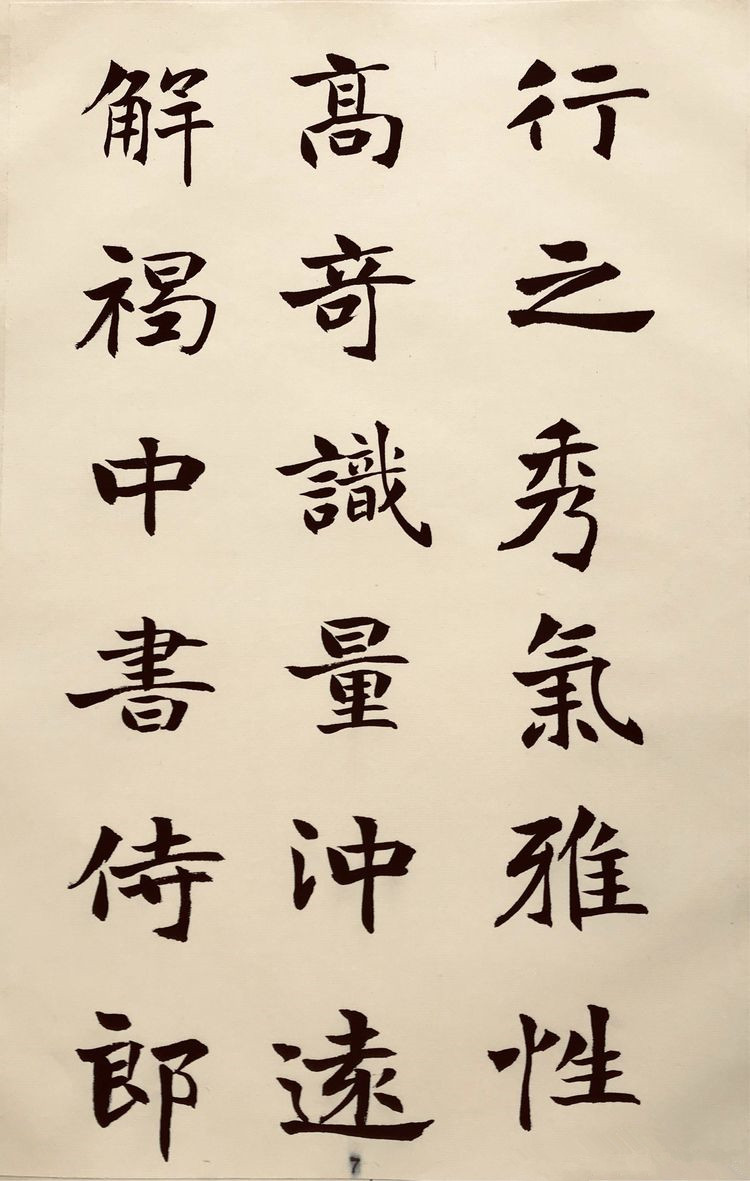 行之秀氣雅性
髙竒識量沖遠
解褐中書侍郎
7